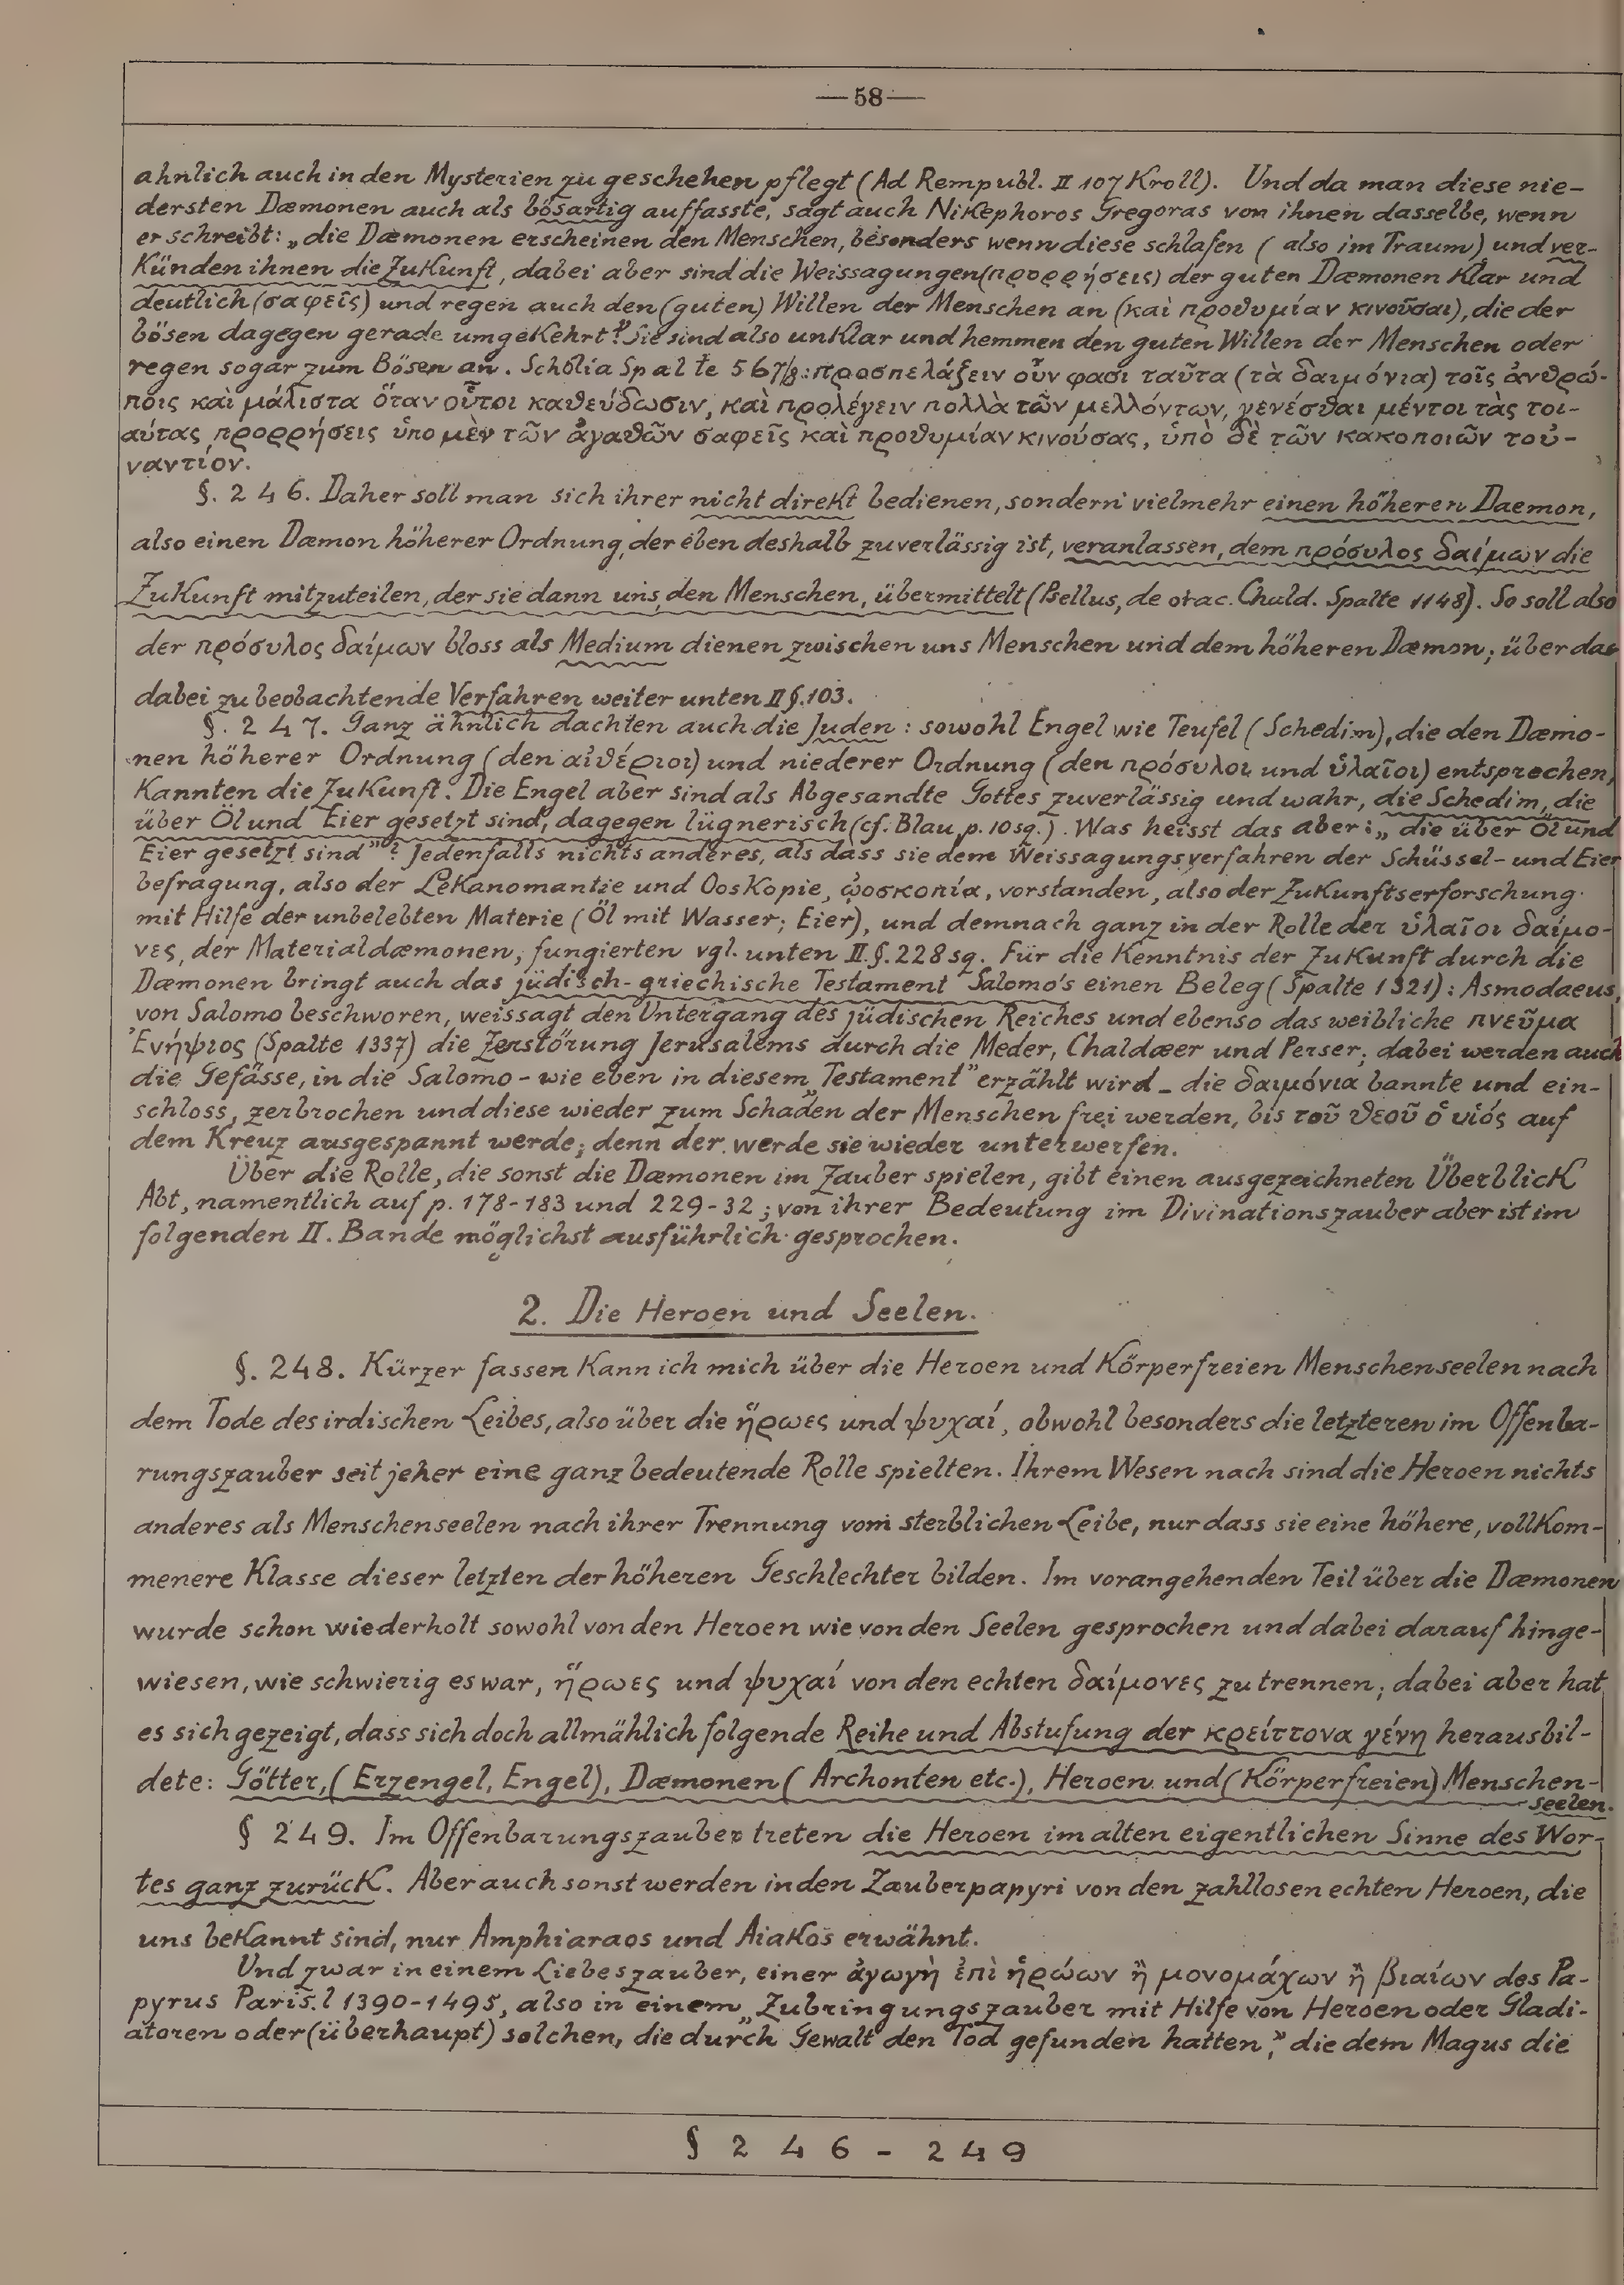 —58—
ahnlich auch in den Mysterien zu geschehen pflegt (Ad Rempubl. II 107 Kroll). Und da man diese nie-
dersten Dæmonen auch als bösartig auffasste, sagt auch Nikephoros Gregoras von ihnen dasselbe, wenn
er schreibt: „die Dæmonen erscheinen den Menschen, besonders wenn diese schlafen (also im Traum) und ver-
künden ihnen die Zukunft, dabei aber sind die Weissagungen (προρρήσεις) der guten Dæmonen klar und
deutlich (σαφεῖς) und regen auch den (guten) Willen der Menschen an (καὶ προθυμίαν κινοῦσαι), die der
bösen dagegen gerade umgekehrt". Sie sind also unklar und hemmen den guten Willen der Menschen oder
regen sogar zum Bösen an. Scholia Spalte 567/8: προσπελάζειν οὖν φασι ταῦτα (τὰ δαιμόνια) τοῖς ἀνθρώ-
ποις καὶ μάλιστα ὅταν οὗτοι καθεύδωσιν, καὶ προλέγειν πολλὰ τῶν μελλόντων, γενέσθαι μέντοι τὰς τοι-
αύτας προρρήσεις ὑπο μὲν τῶν ἀγαθῶν σαφεῖς καὶ προθυμίαν κινούσας, ὑπὸ δὲ τῶν κακοποιῶν τοὐ-
ναντίον.
§. 246. Daher soll man sich ihrer nicht direkt bedienen, sondern vielmehr einen höheren Daemon,
also einen Dæmon höherer Ordnung, der eben deshalb zuverlässig ist, veranlassen, dem πρόσυλος δαίμων die
Zukunft mitzuteilen, der sie dann uns, den Menschen, übermittelt (Psellus, de orac. Chald. Spalte 1148). So soll also
der πρόσυλος δαίμων bloss als Medium dienen zwischen uns Menschen und dem höheren Dæmon; über das
dabei zu beobachtende Verfahren weiter unten II §. 103.
§. 247. Ganz ähnlich dachten auch die Juden: sowohl Engel wie Teufel (Schedim), die den Dæmo-
nen höherer Ordnung (den αἰθέριοι) und niederer Ordnung (den πρόσυλοι und ὑλαῖοι) entsprechen,
kannten die Zukunft. Die Engel aber sind als Abgesandte Gottes zuverlässig und wahr, die Schedim, die
über Öl und Eier gesetzt sind, dagegen lügnerisch (cf. Blau, p. 10 sq.). Was heisst das aber: „die über Öl und
Eier gesetzt sind"? Jedenfalls nichts anderes, als dass sie dem Weissagungsverfahren der Schüssel- und Eier
befragung, also der Lekanomantie und Ooskopie, ᾠοσκοπία, vorstanden, also der Zukunftserforschung
mit Hilfe der unbelebten Materie (Öl mit Wasser; Eier), und demnach ganz in der Rolle der ὑλαῖοι δαίμο-
νες, der Materialdæmonen, fungierten vgl. unten II. §. 228 sq. Für die Kenntnis der Zukunft durch die
Dæmonen bringt auch das jüdisch-griechische Testament Salomo's einen Beleg (Spalte 1321): Asmodaeus,
von Salomo beschworen, weissagt den Untergang des jüdischen Reiches und ebenso das weibliche πνεῦμα
Ἐνήψιος (Spalte 1337) die Zerstörung Jerusalems durch die Meder, Chaldæer und Perser; dabei werden auch
die Gefässe, in die Salomo - wie eben in diesem „Testament" erzählt wird - die δαιμόνια bannte und ein-
schloss, zerbrochen und diese wieder zum Schaden der Menschen frei werden, bis τοῦ θεοῦ ὁ υἱός auf
dem Kreuz ausgespannt werde; denn der werde sie wieder unterwerfen.
Über die Rolle, die sonst die Dæmonen im Zauber spielen, gibt einen ausgezeichneten Überblick
Abt, namentlich auf p. 178-183 und 229-32; von ihrer Bedeutung im Divinationszauber aber ist im
folgenden II. Bande möglichst ausführlich gesprochen.
2. Die Heroen und Seelen.
§. 248. Kürzer fassen kann ich mich über die Heroen und körperfreien Menschenseelen nach
dem Tode des irdischen Leibes, also über die ἥρωες und ψυχαί, obwohl besonders die letzteren im Offenba-
rungszauber seit jeher eine ganz bedeutende Rolle spielten. Ihrem Wesen nach sind die Heroen nichts
anderes als Menschenseelen nach ihrer Trennung vom sterblichen Leibe, nur dass sie eine höhere, vollkom-
menere Klasse dieser letzten der höheren Geschlechter bilden. Im vorangehenden Teil über die Dæmonen
wurde schon wiederholt sowohl von den Heroen wie von den Seelen gesprochen und dabei darauf hinge-
wiesen, wie schwierig es war, ἥρωες und ψυχαί von den echten δαίμονες zu trennen; dabei aber hat
es sich gezeigt, dass sich doch allmählich folgende Reihe und Abstufung der κρείττονα γένη herausbil-
dete: Götter, (Erzengel, Engel), Dæmonen (Archonten etc.), Heroen und (körperfreien) Menschen-
seelen.
§ 249. Im Offenbarungszauber treten die Heroen im alten eigentlichen Sinne des Wor-
tes ganz zurück. Aber auch sonst werden in den Zauberpapyri von den zahllosen echten Heroen, die
uns bekannt sind, nur Amphiaraos und Aiakos erwähnt.
Und zwar in einem Liebeszauber, einer ἀγωγὴ ἐπὶ ἡρώων ἢ μονομάχων ἢ βιαίων des Pa-
pyrus Paris. l 1390-1495, also in einem „Zubringungszauber mit Hilfe von Heroen oder Gladi-
atoren oder (überhaupt) solchen, die durch Gewalt den Tod gefunden hatten," die dem Magus die
§ 246 - 249